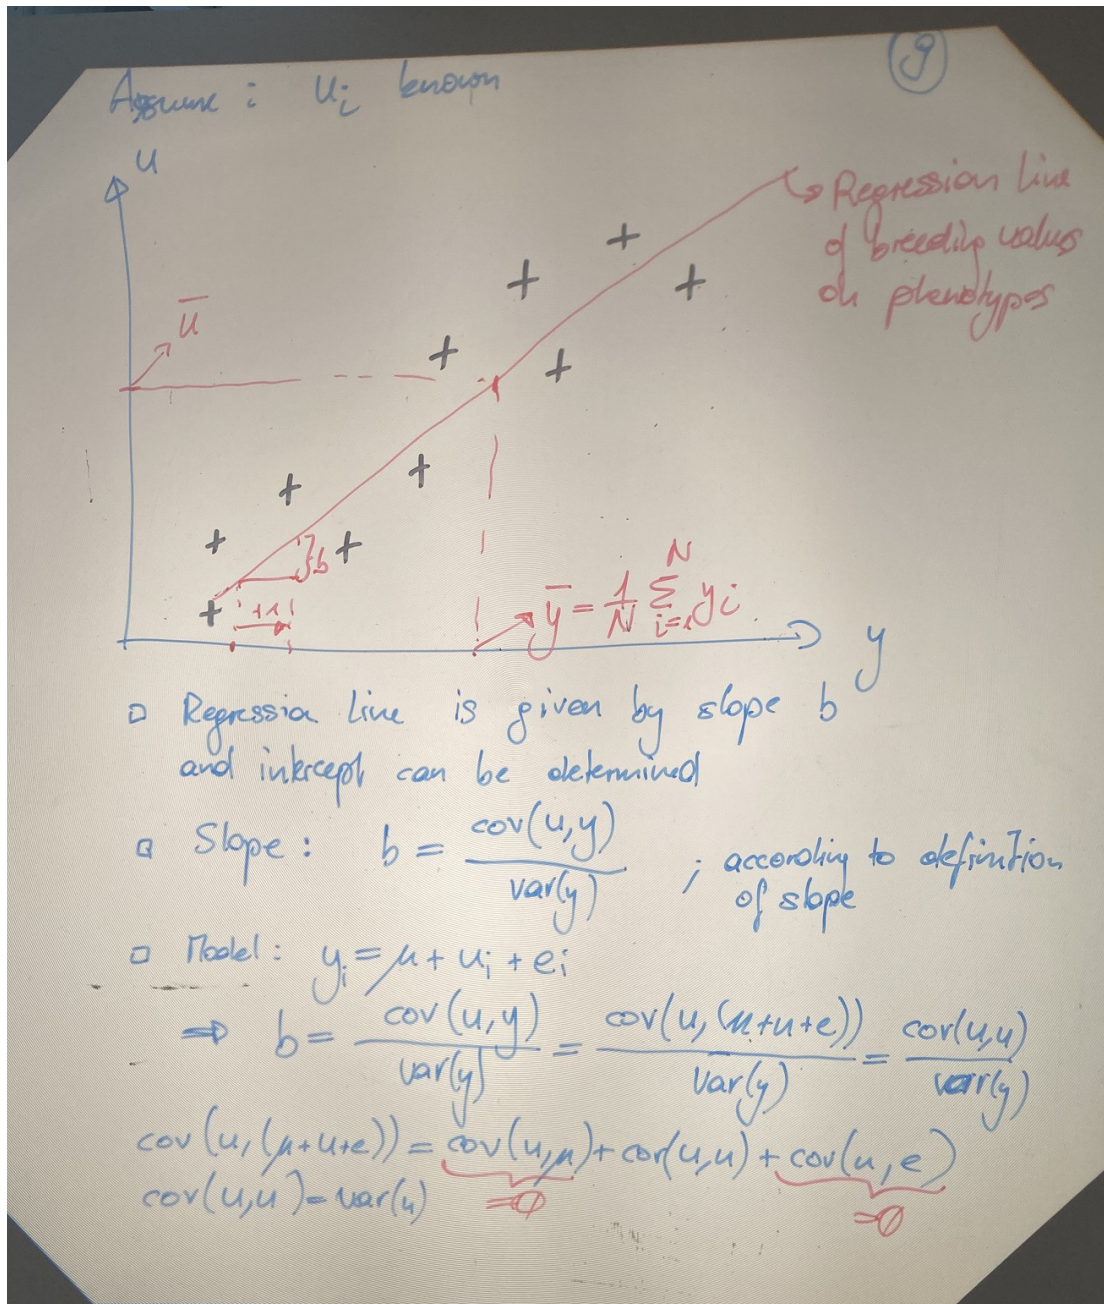 Assume : u_i known
9
u
Regression line
of breeding values
on phenotypes
ū
}b
+1
ȳ = 1/N Σ_{i=1}^{N} y_i
y
□ Regression line is given by slope b
and intercept can be determined
□ Slope : b = cov(u,y) / var(y) ; according to definition
of slope
□ Model : y_i = μ + u_i + e_i
⇒ b = cov(u,y) / var(y) = cov(u,(μ+u+e)) / var(y) = cov(u,u) / var(y)
cov(u,(μ+u+e)) = cov(u,μ) + cov(u,u) + cov(u,e)
=0 =0
cov(u,u) = var(u)